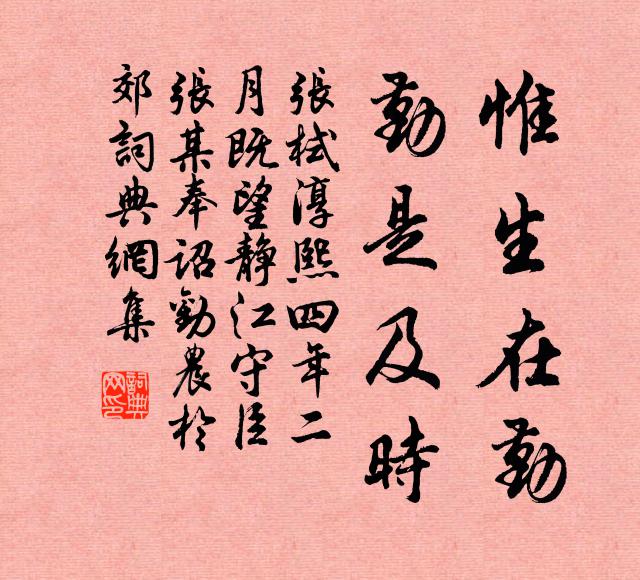 惟生在勤
勤是及時
張栻淳熙四年二
月既望靜江守臣
張某奉詔勸農於
郊詞典網集
詞典
网印